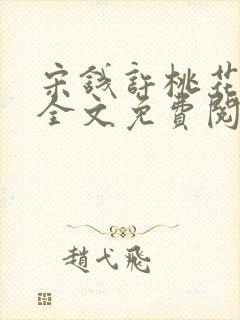 宋錢許桃花
全文免費閱
趙弋飛